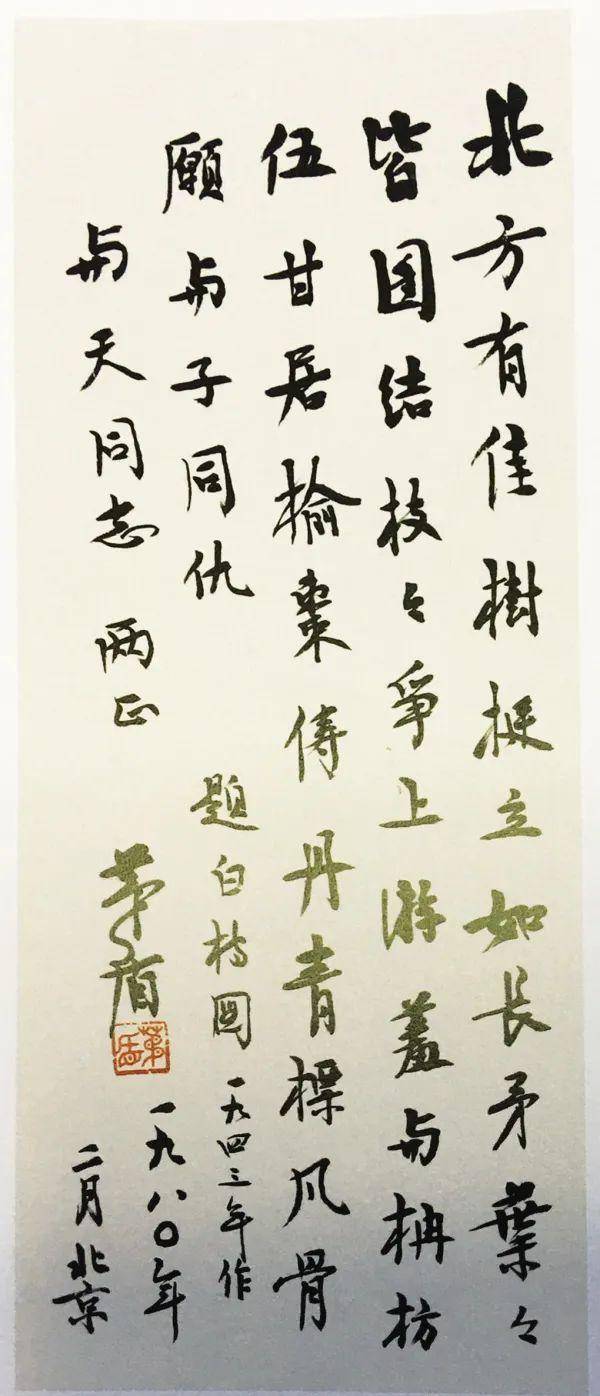 北方有佳樹挺立如長矛葉々
皆团結枝々爭上游羞与柟枋
伍甘居榆棗俦丹青標风骨
願与子同仇 題白杨图 一九四三年作
与天同志 两正 茅盾 一九八〇年
二月北京